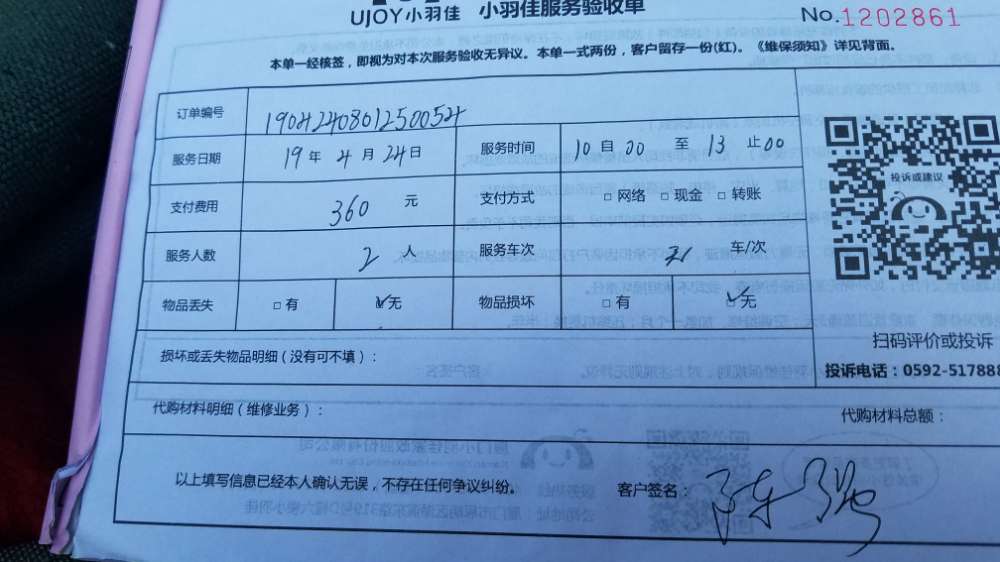 UJOY小羽佳 小羽佳服务验收单
No.1202861
本单一经核签，即视为对本次服务验收无异议。本单一式两份，客户留存一份(红)。《维保须知》详见背面。
订单编号 1904240801250054
服务日期 19年4月24日 服务时间 10自00至13止00
支付费用 360元 支付方式 □网络 □现金 □转账
服务人数 2人 服务车次 车/次
物品丢失 □有 ☑无 物品损坏 □有 ☑无
投诉或建议
扫码评价或投诉
投诉电话：0592-517888
损坏或丢失物品明细（没有可不填）：
代购材料明细（维修业务）： 代购材料总额：
以上填写信息已经本人确认无误，不存在任何争议纠纷。 客户签名：陈强